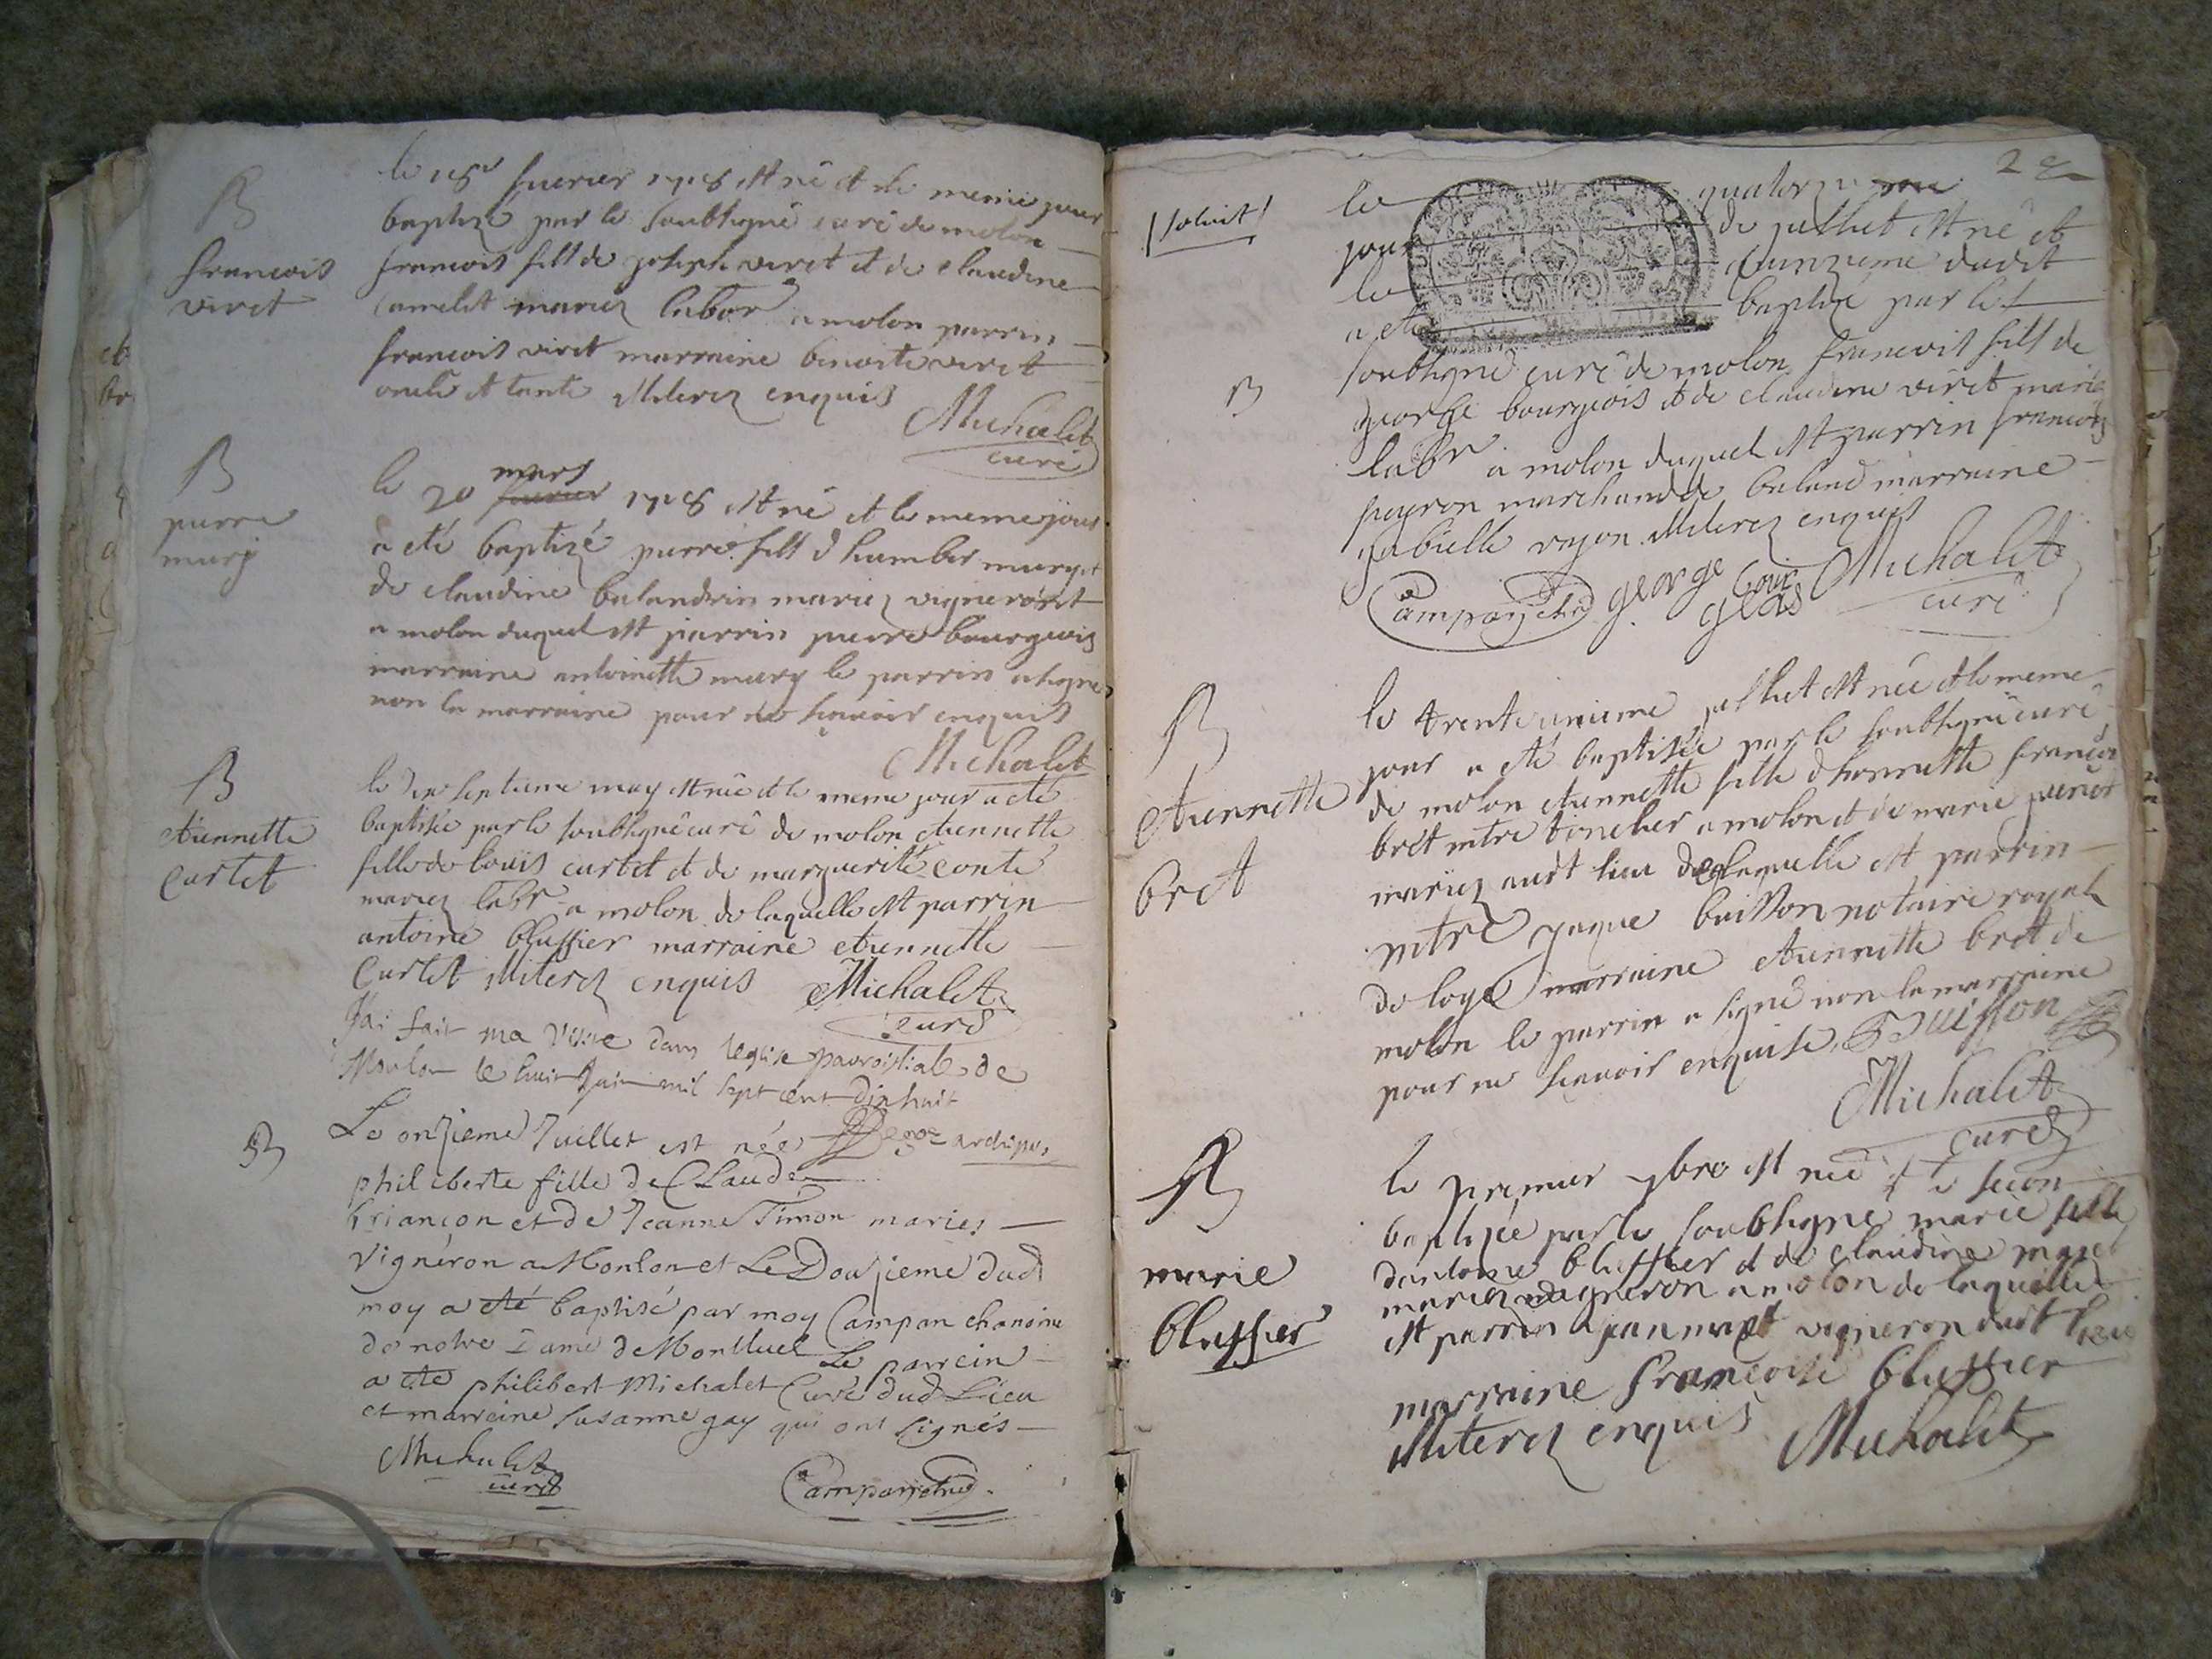 B
francois
viret
le 18e feuvrier 1718 est né et le meme jour
baptizé par le soubsigné curé de molon
francois fils de joseph viret et de claudine
camelet mariez labor a molon parrin
francois viret marraine benoite viret
oncle et tante illiterez enquis
Michalet
curé
B
pierre
mury
mars
le 20 feuvrier 1718 est né et le meme jour
a eté baptizé pierre fils d humber mury et
de claudine balandrin mariez vigneront
a molon duquel est parrin pierre bourgeois
marraine antoinette mury le parrin a signe
non la marraine pour ne sçavoir enquis
Michalet
B
etiennette
curtet
le dix septieme may est née et le meme jour a eté
baptisée par le soubsigné curé de molon etiennette
fille de louis curtet et de marguerite conte
mariez labr a molon de laquelle est parrin
antoine bluffier marraine etiennette
Curtet illiterez enquis Michalet
curé
J'ai fait ma visite dans leglise parroissiale de
Moulon le huit Juin mil sept cent dix huit
archipre
B
Le onzieme Juillet est née
philiberte fille de Claude
briançon et de Jeanne Timon maries
vigneron a Monlon et Le Douzieme dud
moy a eté baptisé par moy Campan chanoine
de notre Dame de Montluel Le parrein
a eté philibert Michalet Curé dud Lieu
et marreine susanne gay qui ont signés
Michalet
curé
Campan che
2
solvit
B
le quatorzieme
jour de juillet est né et
le quinzieme dudit
a eté baptizé par le
soubsigné curé de molon francois fils de
george bourgeois et de claudine viret mariez
labr a molon duquel est parrin francois
peyron marchand de baland marraine
illiterez enquis
Campan che george bour
geois
Michalet
curé
B
etiennette
bret
le trente unieme juillet est née et le meme
jour a eté baptisée par le soubsigné curé
de molon etiennette fille d honnette francois
bret mtre a molon et de marie
mariez audt lieu de laquelle est parrin
mtre jaque buisson notaire royal
de loye marraine etiennette bret de
molon le parrin a signé non la marraine
pour ne sçavoir enquise Buisson
Michalet
curé
B
marie
bluffier
le premier 9bre est née et le secon
baptizée par le soubsigné marie fille
dantoine bluffier et de claudine
mariez vigneron a molon de laquelle
est parrin jean vigneron dudt lieu
marraine francoise bluffier
illiterez enquis
Michalet